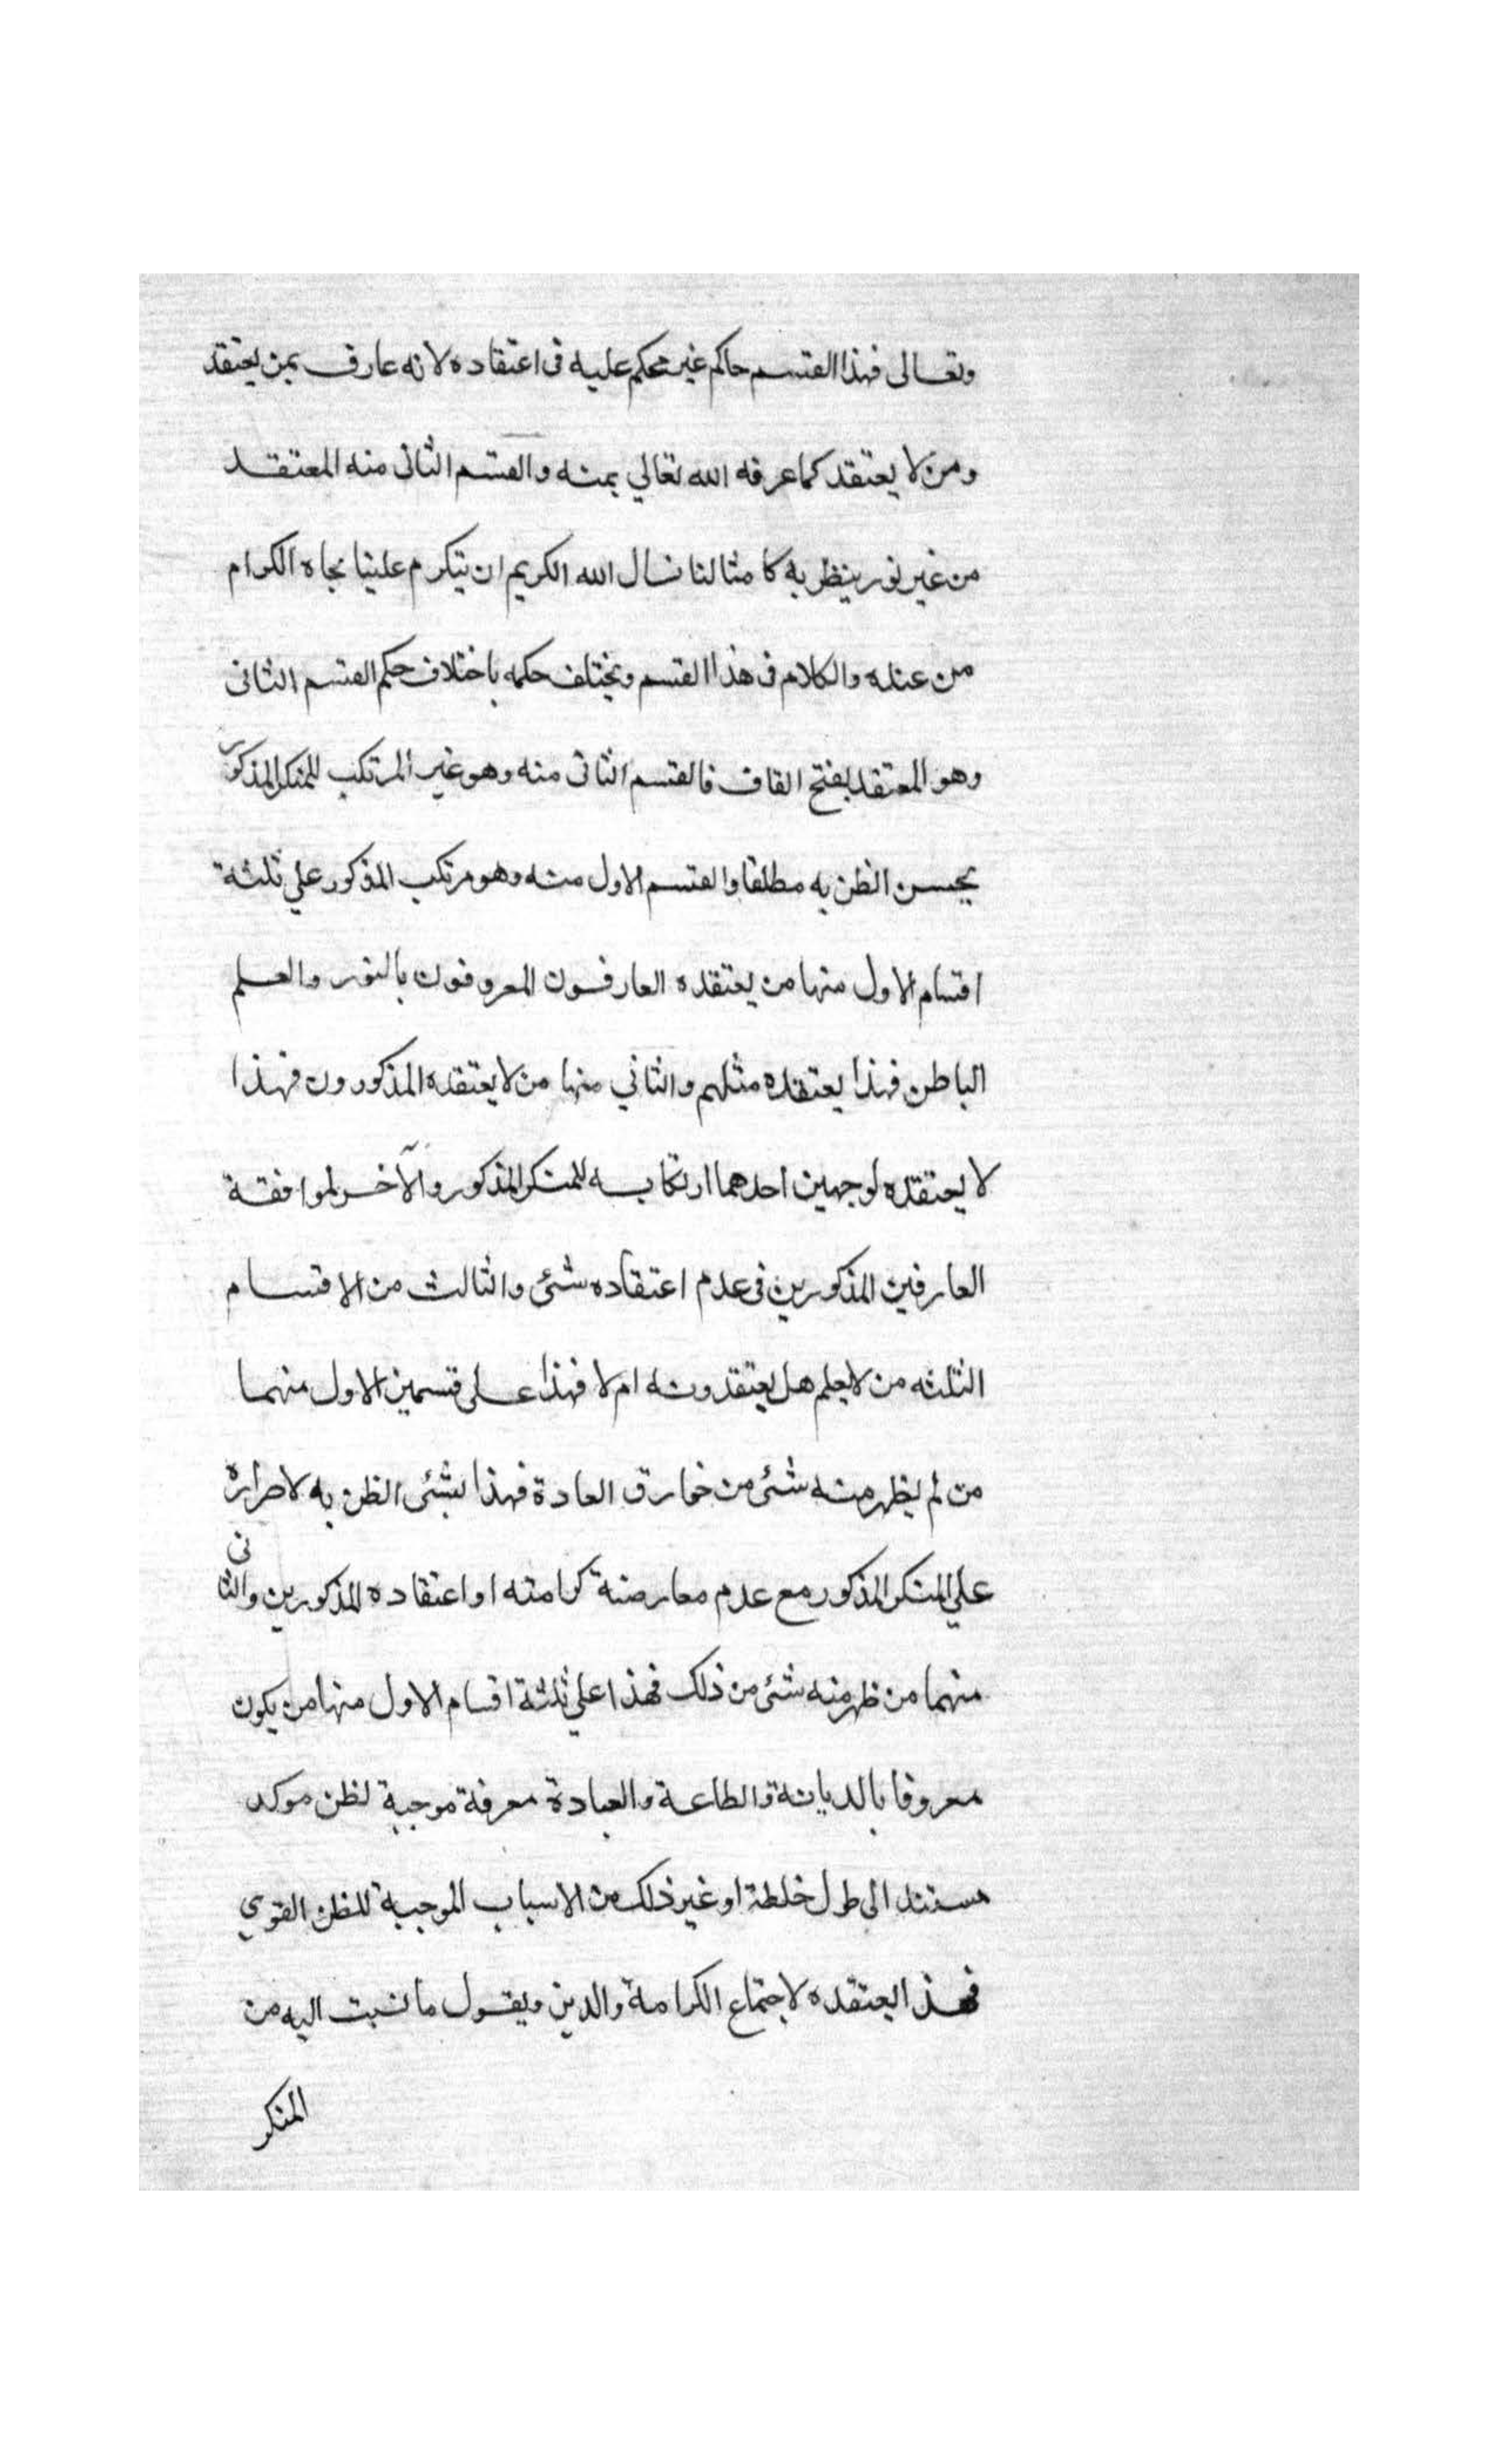 وتعالى فهذا القسم حاكم غير محكم عليه فى اعتقاده لانه عارف بمن يعتقد
ومن لا يعتقد كما عرفه الله تعالي بمنه والقسم الثانى منه المعتقد
من غير نور ينظر به كا مثالنا نسال الله الكريم ان يتكرم علينا بجاه الكرام
من عنده والكلام فى هذا القسم ويختلف حكمه باختلاف حكم القسم الثانى
وهو المعتقد بفتح القاف فالقسم الثانى منه وهو غير المرتكب للمنكر المذكور
يحسن الظن به مطلقا والقسم الاول منه وهو مرتكب المذكور علي ثلثة
اقسام الاول منها من يعتقده العارفون المعروفون بالنور والعلم
الباطن فهذا يعتقده مثلهم والثاني منها من لا يعتقده المذكورون فهذا
لا يعتقده لوجهين احدهما ارتكابه للمنكر المذكور والآخر لموافقة
العارفين المذكورين فى عدم اعتقاده شئى والثالث من الاقسام
الثلثه من لا يعلم هل يعتقدونه ام لا فهذا على قسمين الاول منهما
من لم يظهر منه شئى من خوارق العادة فهذا يسئى الظن به لاصراره
علي المنكر المذكور مع عدم معارضة كرامته او اعتقاده المذكورين والثانى
منهما من ظهر منه شئى من ذلك فهذا علي ثلثة اقسام الاول منها من يكون
معروفا بالديانة والطاعة والعبادة معرفة موجبة لظن موكد
مستند الى طول خلطة او غير ذلك من الاسباب الموجبة للظن القوي
فهذا يعتقده لاجتماع الكرامة والدين ويقول ما نسبت اليه من
المنكر